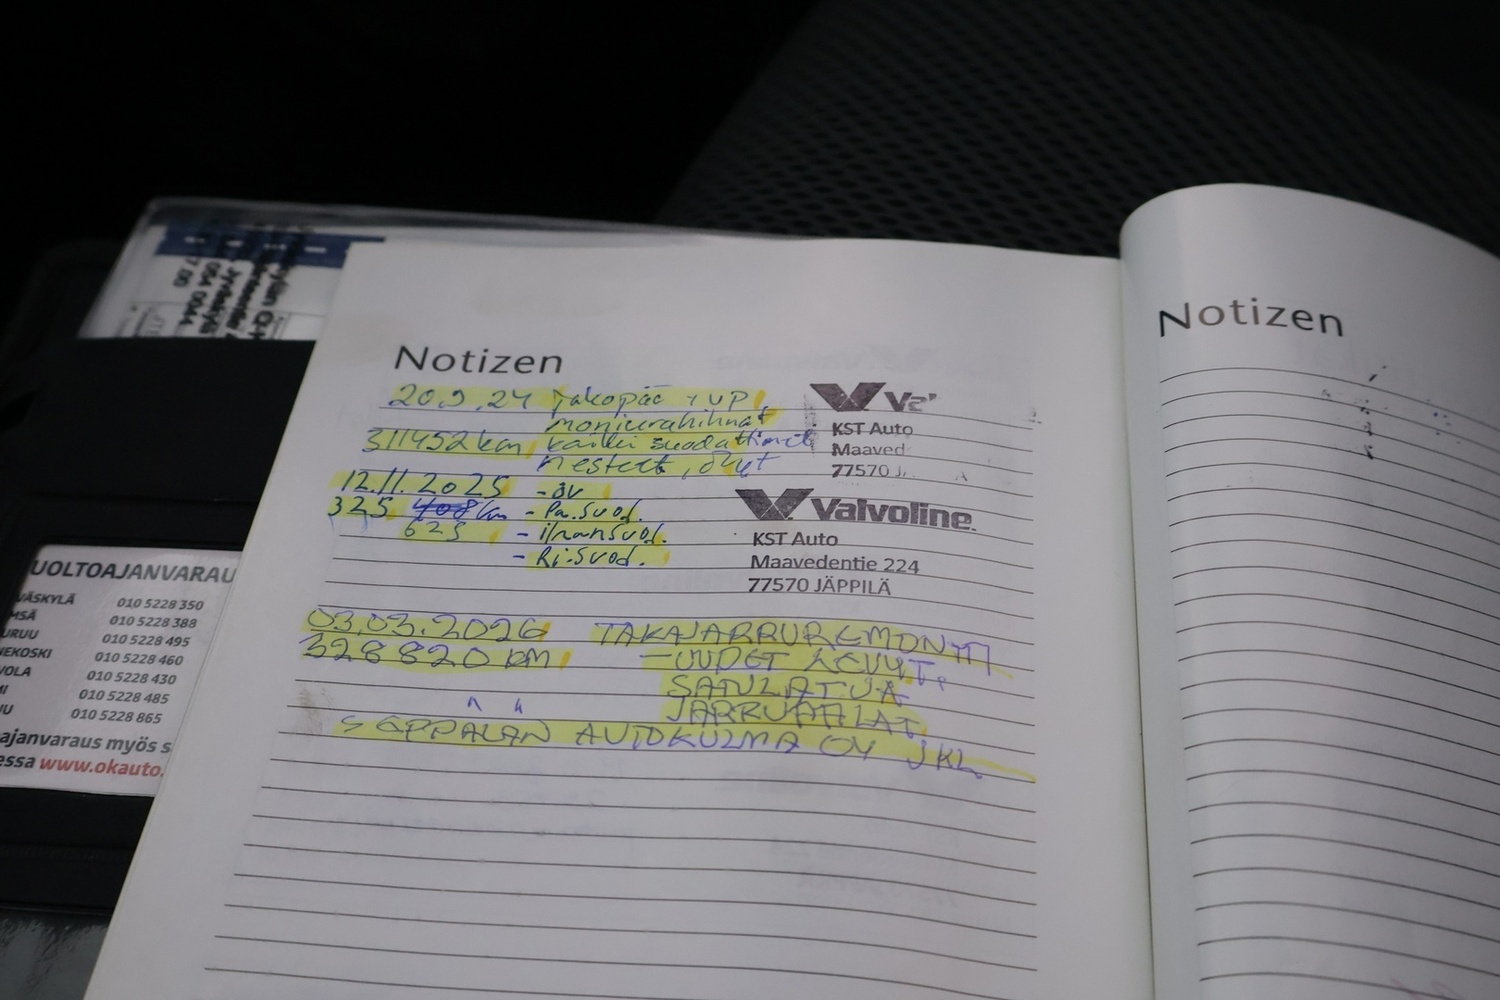 Notizen
20.9.24 jakopää + VP
moniurahihnat
311452 km kaikki suodattimet
nesteet, öljyt
KST Auto
Maaved
77570 J
12.11.2025 - öv
325 408 km - Pa.suod.
625 - ilmansuod.
- Ri.suod.
Valvoline
KST Auto
Maavedentie 224
77570 JÄPPILÄ
03.03.2026 TAKAJARRUREMONTTI
328 820 KM - UUDET LEVYT,
SATULAT JA
JARRUPALAT
SEPPÄLÄN AUTOKULMA OY JKL
Notizen
UOLTOAJANVARAU
VÄSKYLÄ 010 5228 350
MSÄ 010 5228 388
URUU 010 5228 495
NEKOSKI 010 5228 460
VOLA 010 5228 430
MI 010 5228 485
U 010 5228 865
ajanvaraus myös s
essa www.okauto.